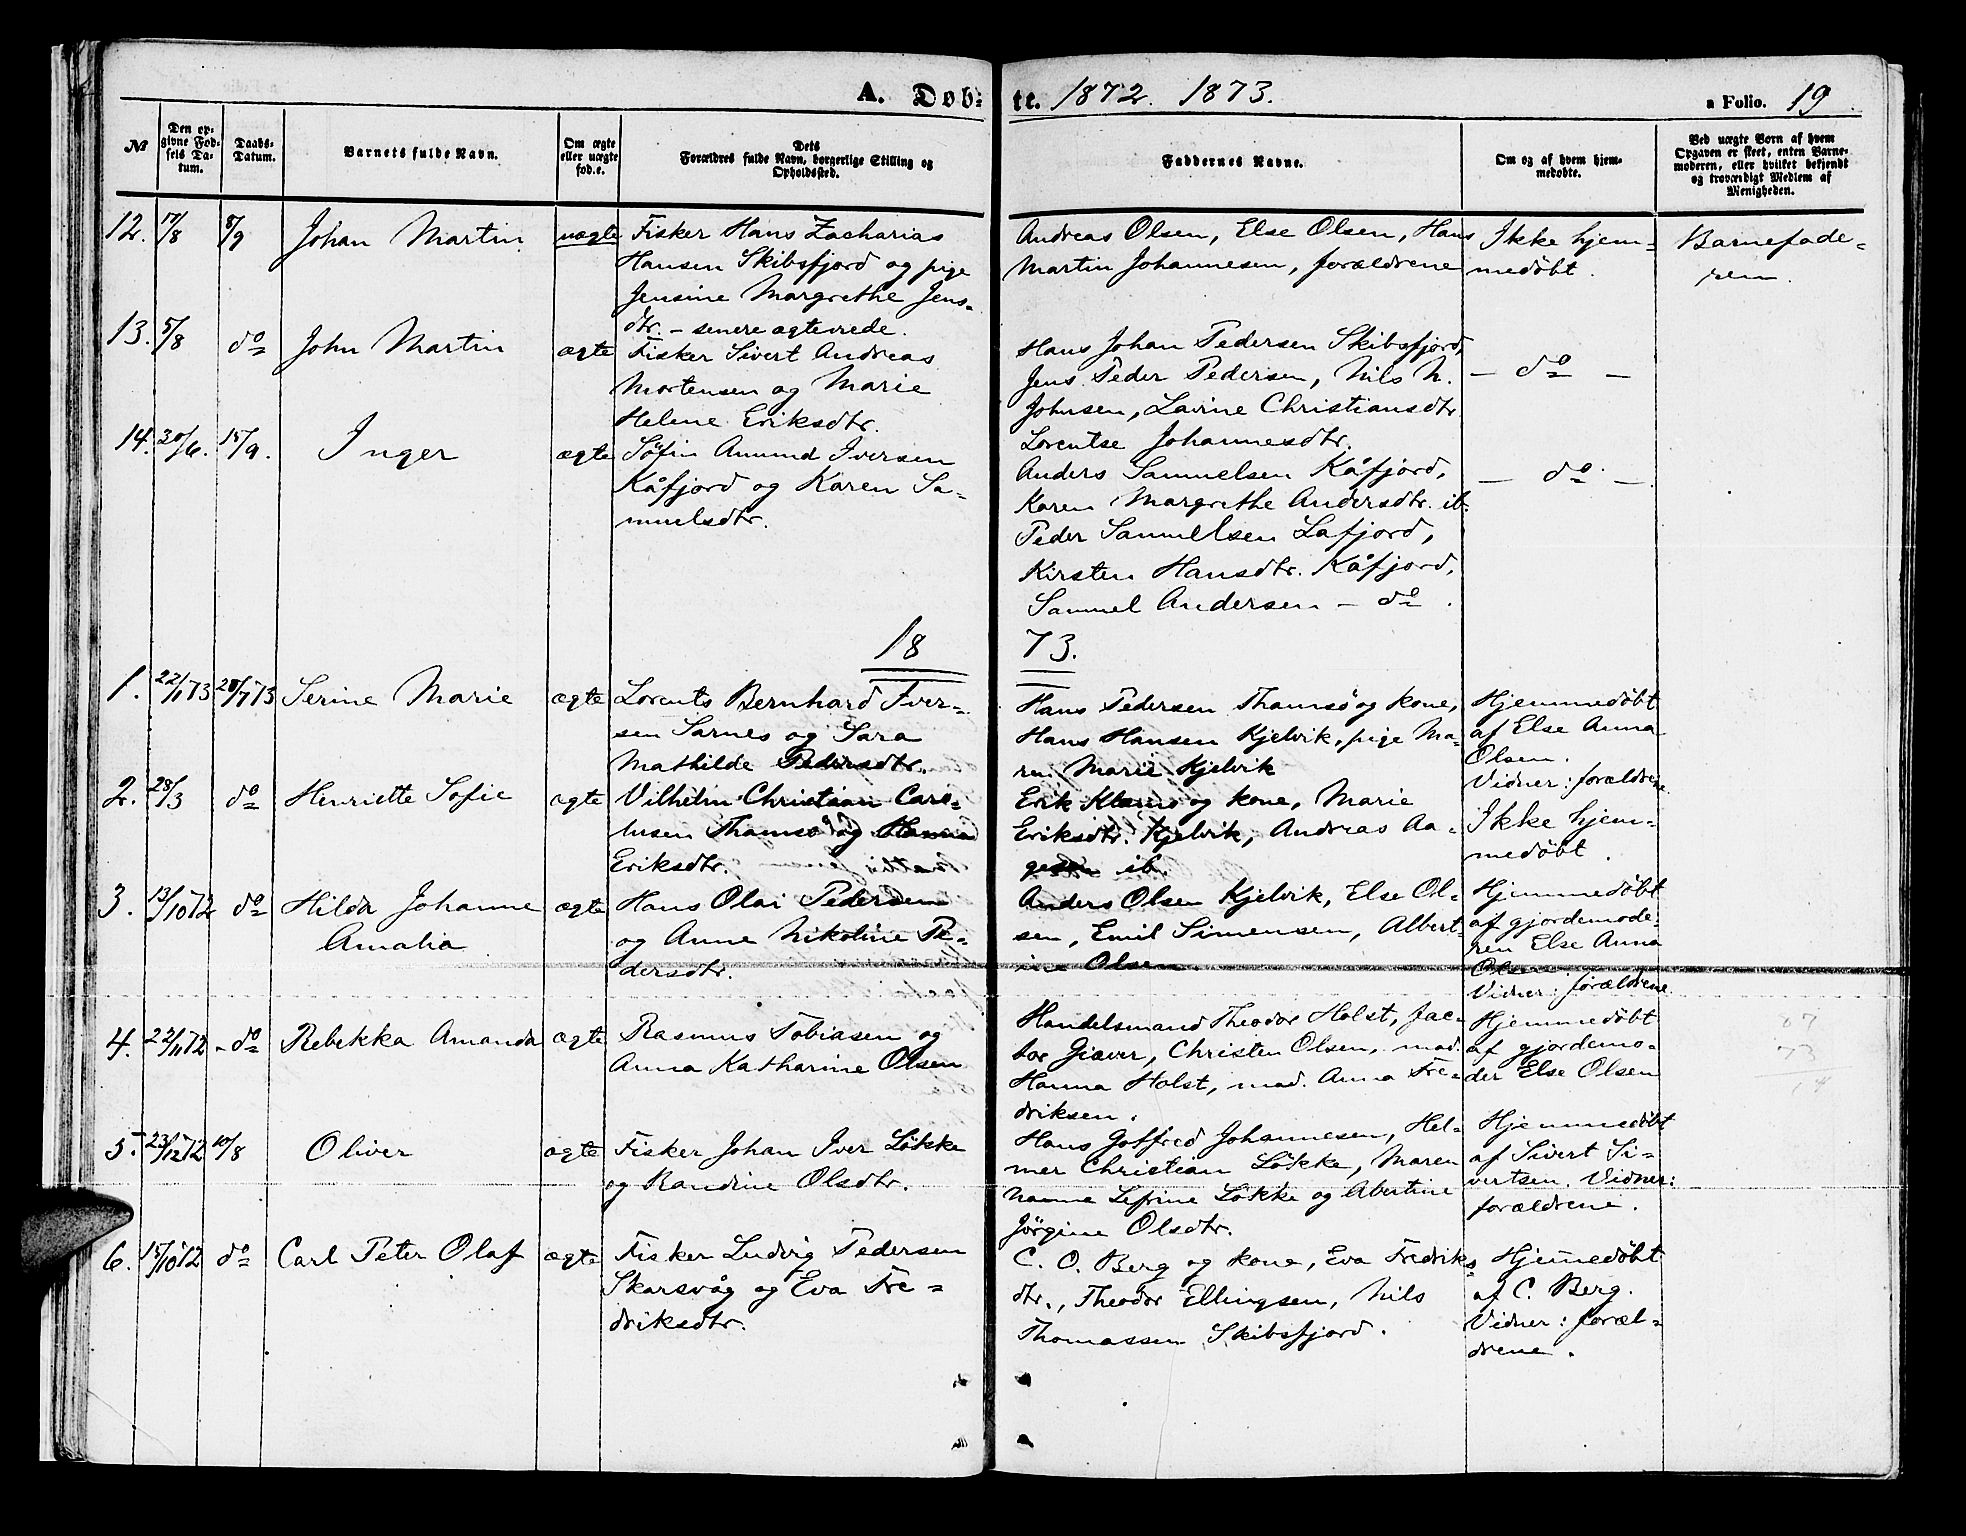 A. Døb-
te. 1872. 1873.
a Folio. 19
№
Den op-
givne Fød-
sels Da-
tum.
Daabs-
Datum.
Barnets fulde Navn.
Om ægte
eller uægte
fød.e.
Dets
Forældres fulde Navn, borgerlige Stilling og
Opholdssted.
Faddernes Navne.
Om og af hvem hjem-
medøbte.
Ved uægte Børn af hvem
Opgaven er skeet, enten Barne-
moderen, eller hvilket bekjendt
og troværdigt Medlem af
Menigheden.
12. 17/8 8/9 Johan Martin uægte
Fisker Hans Zacharias
Hansen Skibsfjord og pige
Jensine Margrethe Jens-
dtr. – senere ægteviede.
Andreas Olsen, Else Olsen, Hans
Martin Johannesen, forældrene
Ikke hjem-
medøbt.
Barnefade-
ren
13. 5/8 do John Martin ægte
Fisker Sivert Andreas
Mortensen og Marie
Helene Eriksdtr.
Hans Johan Pedersen Skibsfjord,
Jens Peder Pedersen, Nils N.
Johnsen, Lavine Christiansdtr
Lorentse Johannesdtr.
– do –
14. 30/6. 15/9. Inger ægte
Søfin Amund Iversen
Kåfjord og Karen Sa-
muelsdtr.
Anders Samuelsen Kåfjord,
Karen Margrethe Andersdtr. ib.
Peder Samuelsen Lafjord,
Kirsten Hansdtr. Kåfjord,
Samuel Andersen – do.
– do –
18 73.
1. 22/1 73 20/7 73 Serine Marie ægte
Lorents Bernhard Iver-
sen Sarnes og Sara
Mathilde Pedersdtr.
Hans Pedersen Thamsø og kone,
Hans Hansen Kjelvik, pige Ma-
ren Marie Kjelvik
Hjemmedøbt
af Else Anna
Olsen.
Vidner: forældrene
2. 28/3 do Henriette Sofie ægte
Vilhelm Christian Carl-
husen Thamsø og Hanna
Eriksdtr.
Erik Klemo og kone, Marie
Eriksdtr. Kjelvik, Andreas Aa-
gesen ib.
Ikke hjem-
medøbt.
3. 13/10 72 do Hilda Johanne ægte
Amalia
Hans Olai Pedersen
og Anne Nikoline Pe-
dersdtr.
Anders Olsen Kjelvik, Else Ol-
sen, Emil Simensen, Albert-
ine Olsen.
Hjemmedøbt
af gjordemode-
ren Else Anna
Olsen
Vidner: forældrene
4. 22/11 72 – do Rebekka Amanda ægte
Rasmus Tobiasen og
Anna Katharine Olsen
Handelsmand Theodor Holst, fac-
tor Giæver, Christen Olsen, mad.
Hanna Holst, mad. Anna Fre-
driksen.
Hjemmedøbt
af gjordemo-
der Else Olsen
5. 23/12 72 10/8 Oliver ægte
Fisker Johan Iver Løkke
og Randine Olsdtr.
Hans Gotfred Johannesen, Hel-
mer Christian Løkke, Maren
Nanna Sefrine Løkke og Abertine
Jørgine Olsdtr.
Hjemmedøbt
af Sivert Si-
vertsen. Vidner:
forældrene.
6. 15/10 72 do Carl Peter Olaf ægte
Fisker Ludvig Pedersen
Skarsvåg og Eva Fre-
driksdtr.
C. O. Berg og kone, Eva Fredriks
dtr., Theodor Ellingsen, Nils
Thomassen Skibsfjord.
Hjemedøbt
af C. Berg.
Vidner: foræl-
drene.